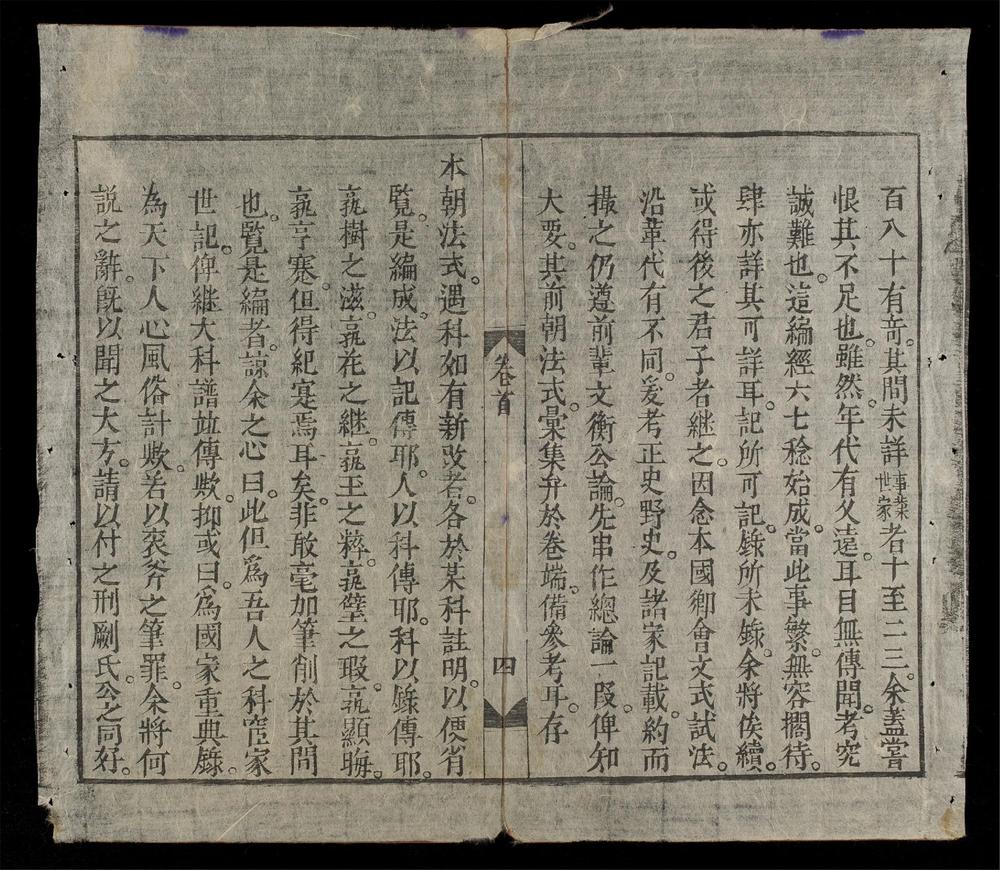 百八十有竒。其間未詳事業世家者十至二三。余蓋嘗
恨其不足也。雖然。年代有久遠。耳目無傳聞。考究
誠難也。這編經六七稔始成。當此事繁。無容擱待。
肆亦詳其可詳耳。記所可記。錄所未錄。余將俟續。
或得後之君子者繼之。因念本國鄉會文式試法。
沿革代有不同。爰考正史野史。及諸家記載。約而
撮之。仍遵前輩文衡公論。先串作總論一段。俾知
大要。其前朝法式。彙集弁於卷端。備參考耳。存
卷首
四
本朝法式。遇科如有新改者。各於某科註明。以便省
覽。是編成。法以記傳耶。人以科傳耶。科以錄傳耶。
孰樹之滋。孰花之継。孰玉之粹。孰璧之瑕。孰顯晦。
孰亨蹇。但得紀寔焉耳矣。非敢毫加筆削於其間
也。覽是編者。諒余之心曰。此但爲吾人之科宦家
世記。俾継大科譜並傳歟。抑或曰。爲國家重典錄。
為天下人心風俗計歟。若以衮斧之筆罪。余將何
説之辭。旣以聞之大方。請以付之刑劂氏。公之同好。